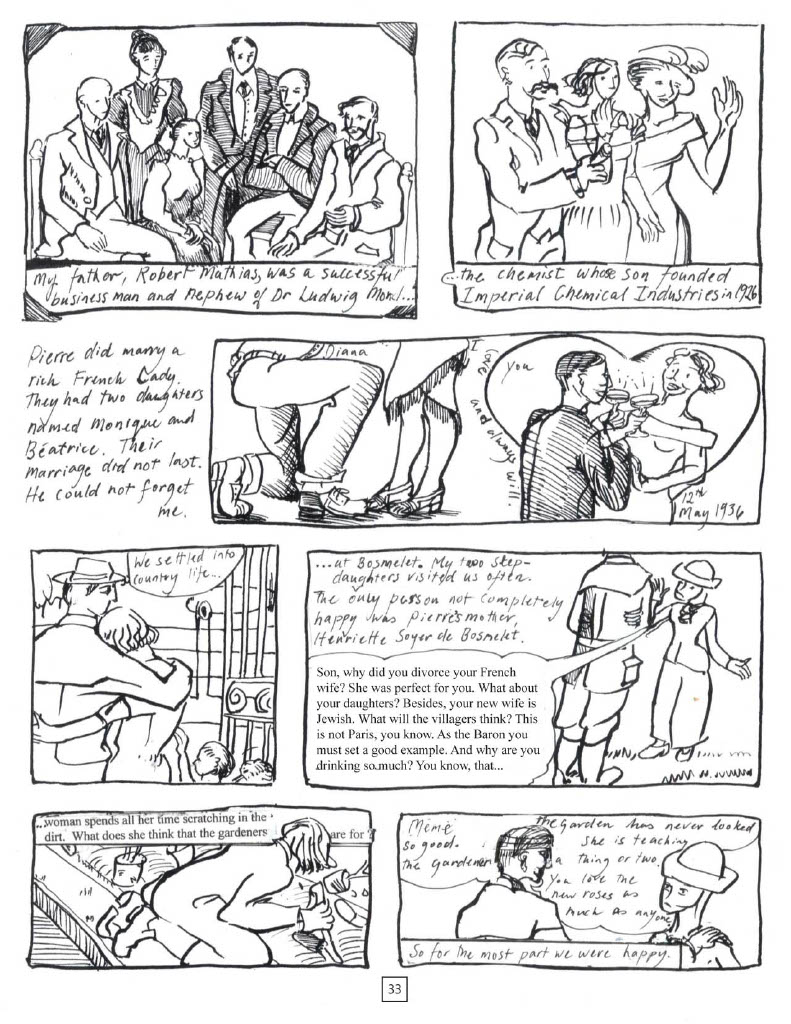 My father, Robert Mathias, was a successful
business man and nephew of Dr Ludwig Mond...
...the chemist whose son founded
Imperial Chemical Industries in 1926
Pierre did marry a
rich French Lady.
They had two daughters
named Monique and
Béatrice. Their
marriage did not last.
He could not forget
me.
Diana
I love you and always will.
12th
May 1936
We settled into
country life...
...at Bosmelet. My two step-
daughters visited us often.
The only person not completely
happy was Pierre's mother,
Henriette Soyer de Bosmelet.
Son, why did you divorce your French
wife? She was perfect for you. What about
your daughters? Besides, your new wife is
Jewish. What will the villagers think? This
is not Paris, you know. As the Baron you
must set a good example. And why are you
drinking so much? You know, that...
...woman spends all her time scratching in the
dirt. What does she think that the gardeners are for?
Mémé the garden has never looked
so good. She is teaching
the gardener a thing or two.
You love the
new roses as
much as anyone
So for the most part we were happy.
33